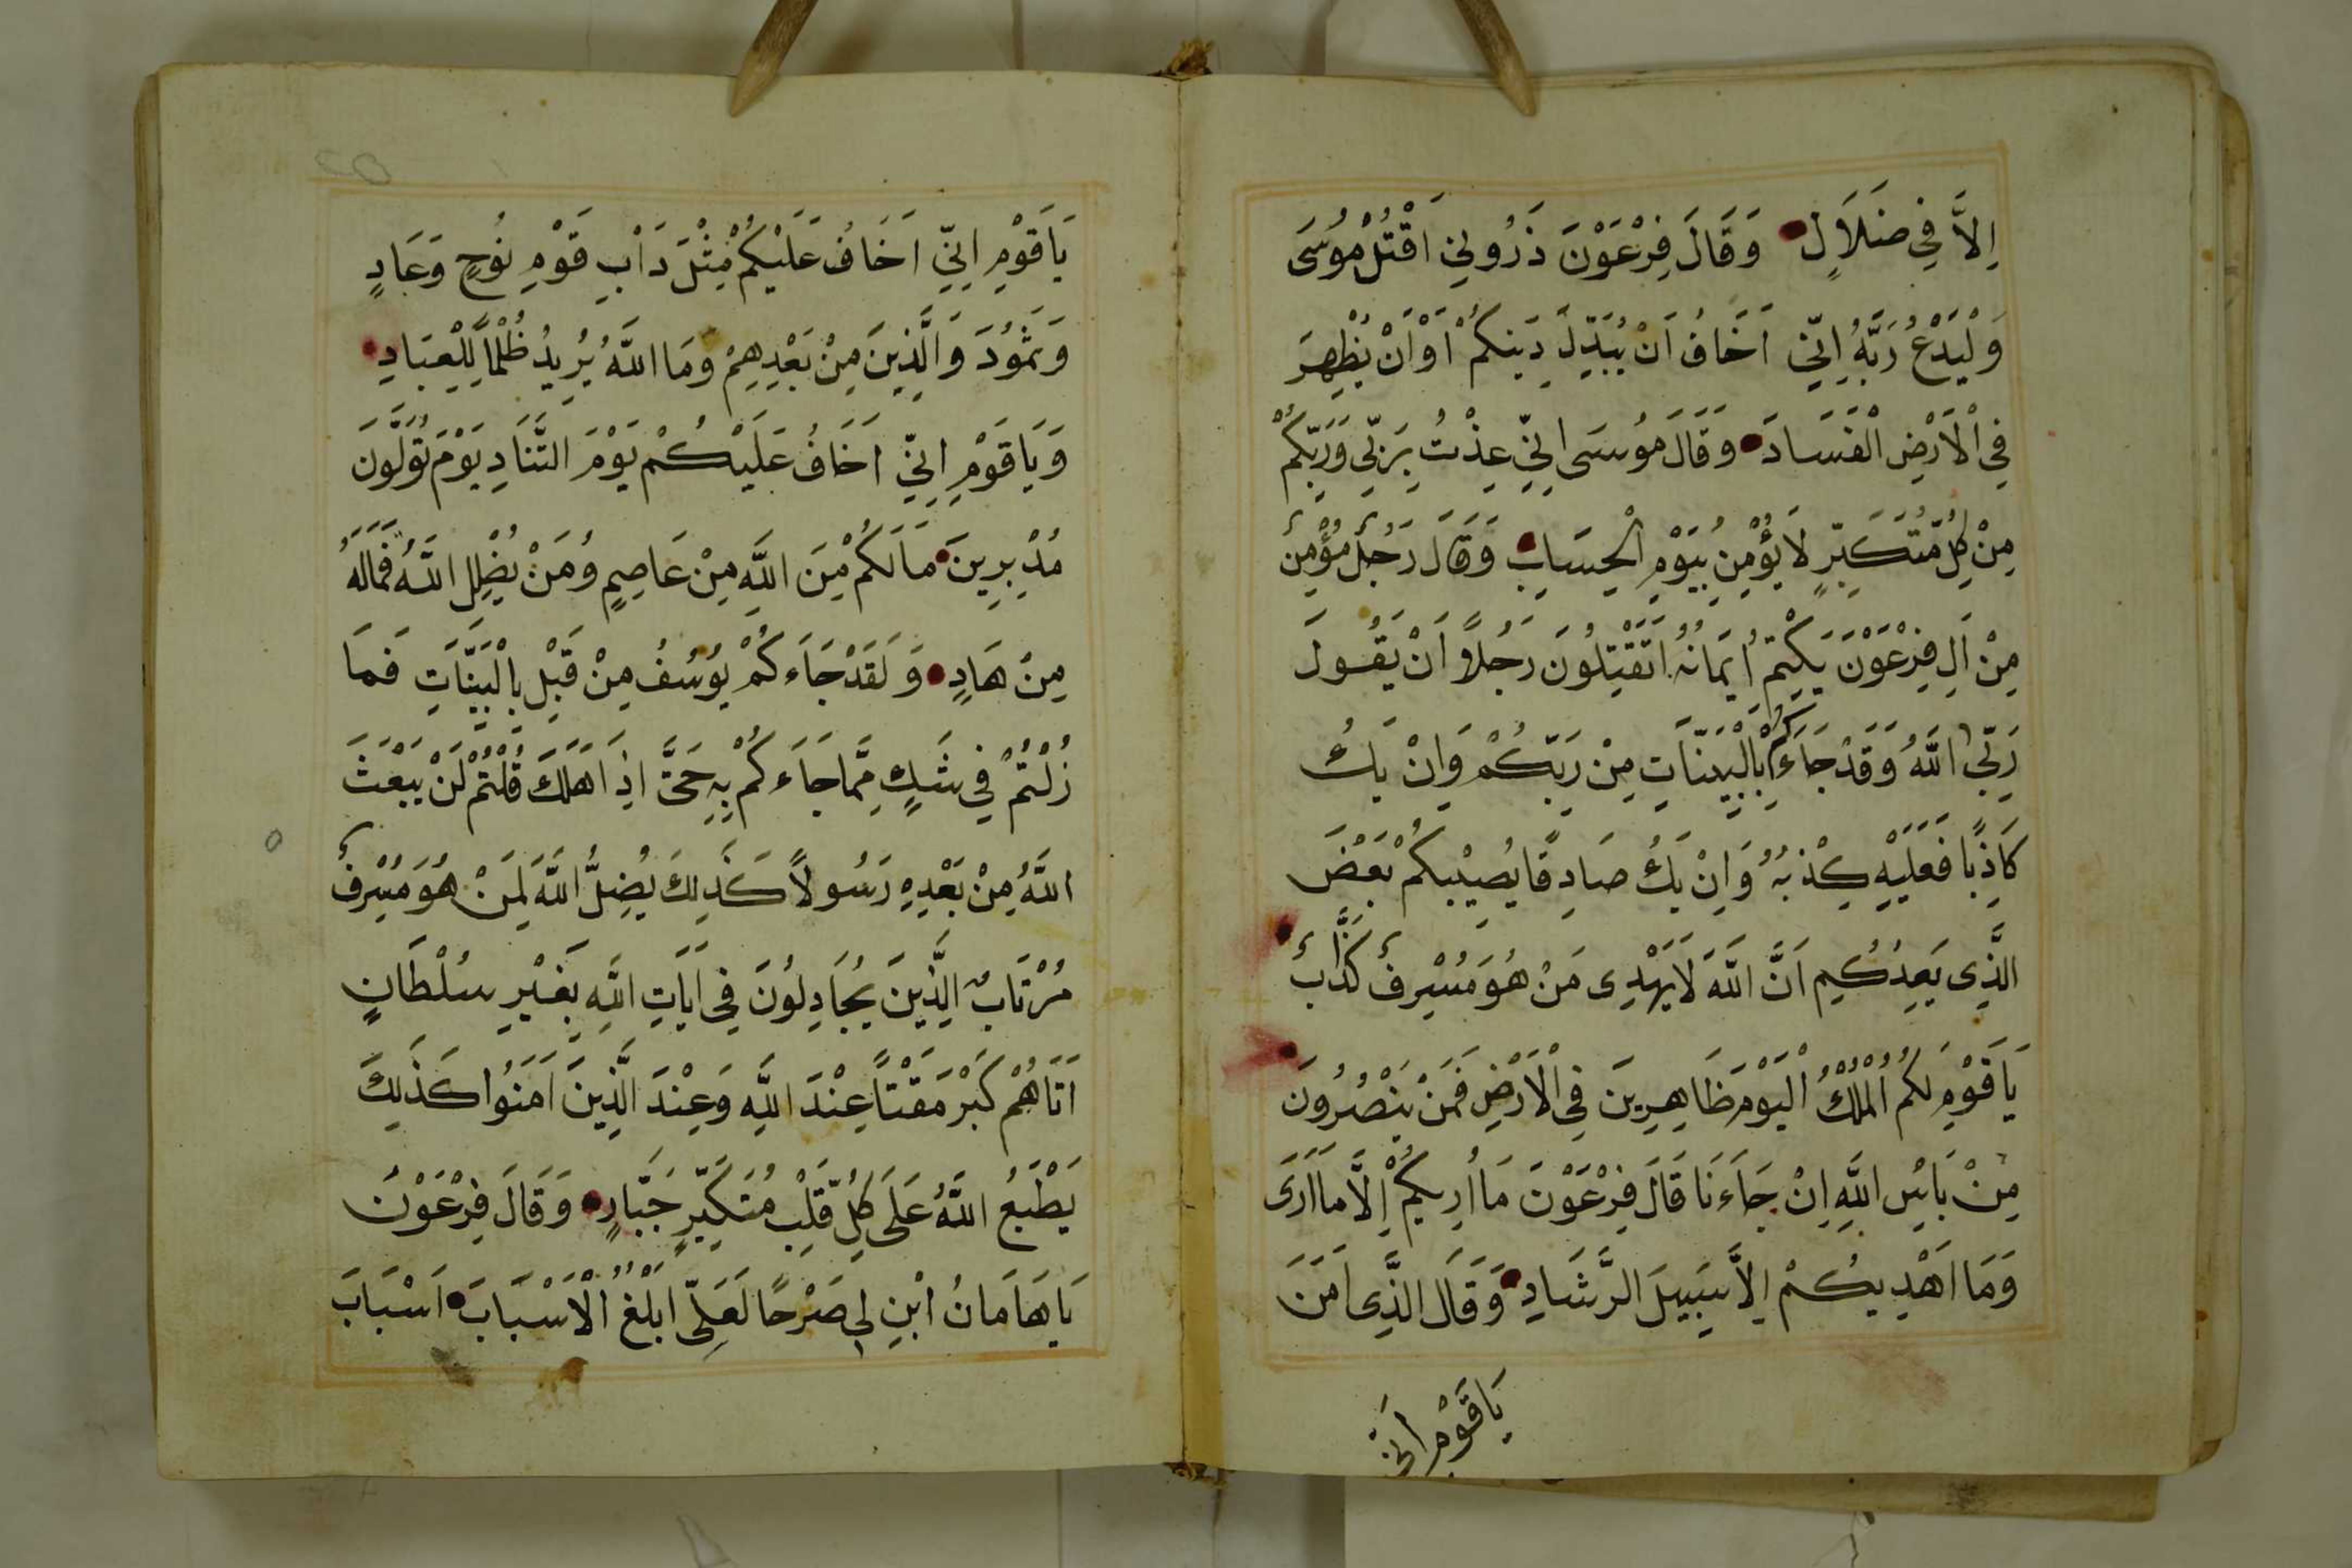 اِلاَّ فِي ضَلَالٍ وَقَالَ فِرْعَوْنَ ذَرُونِي اَقْتُلْ مُوسَى
وَلْيَدْعُ رَبَّهُ اِنِّي اَخَافُ اَنْ يُبَدِّلَ دِينَكُمْ اَوْ اَنْ يُظْهِرَ
فِي الْاَرْضِ الْفَسَادَ وَقَالَ مُوسَى اِنِّي عِذْتُ بِرَبِّي وَرَبِّكُمْ
مِنْ كُلِّ مُتَكَبِّرٍ لَا يُؤْمِنُ بِيَوْمِ الْحِسَابِ وَقَالَ رَجُلٌ مُؤْمِنٌ
مِنْ اَلِ فِرْعَوْنَ يَكْتِمُ اِيمَانَهُ اَتَقْتُلُونَ رَجُلًا اَنْ يَقُولَ
رَبِّيَ اللَّهُ وَقَدْ جَاءَكُمْ بِالْبَيِّنَاتِ مِنْ رَبِّكُمْ وَاِنْ يَكُ
كَاذِبًا فَعَلَيْهِ كِذْبُهُ وَاِنْ يَكُ صَادِقًا يُصِيبْكُمْ بَعْضَ
الَّذِي يَعِدُكُمْ اَنَّ اللَّهَ لَا يَهْدِى مَنْ هُوَ مُسْرِفٌ كَذَّابٌ
يَاقَوْمِ لَكُمُ الْمُلْكُ الْيَوْمَ ظَاهِرِينَ فِي الْاَرْضِ فَمَنْ يَنْصُرُونَ
مِنْ بَاْسِ اللَّهِ اِنْ جَاءَنَا قَالَ فِرْعَوْنَ مَا اُرِيكُمْ اِلَّا مَا اَرَى
وَمَا اَهْدِيكُمْ اِلاَّ سَبِيلَ الرَّشَادِ وَقَالَ الَّذِى اَمَنَ
يَاقَوْمِ اِنِّي
يَاقَوْمِ اِنِّي اَخَافُ عَلَيْكُمْ مِثْلَ دَاْبِ قَوْمِ نُوحٍ وَعَادٍ
وَثَمُودَ وَالَّذِينَ مِنْ بَعْدِهِمْ وَمَا اللَّهُ يُرِيدُ ظُلْمًا لِلْعِبَادِ
وَيَاقَوْمِ اِنِّي اَخَافُ عَلَيْكُمْ يَوْمَ التَّنَادِ يَوْمَ تُوَلُّونَ
مُدْبِرِينَ مَالَكُمْ مِنَ اللَّهِ مِنْ عَاصِمٍ وَمَنْ يُضْلِلِ اللَّهُ فَمَالَهُ
مِنْ هَادٍ وَلَقَدْ جَاءَكُمْ يُوسُفُ مِنْ قَبْلِ بِالْبَيِّنَاتِ فَمَا
زُلْتُمْ فِي شَكٍّ مِمَّا جَاءَكُمْ بِهِ حَتَّى اِذَا هَلَكَ قُلْتُمْ لَنْ يَبْعَثَ
اللَّهُ مِنْ بَعْدِهِ رَسُولًا كَذَلِكَ يُضِلُّ اللَّهُ لِمَنْ هُوَ مُسْرِفٌ
مُرْتَابٌ الَّذِينَ يُجَادِلُونَ فِي اَيَاتِ اللَّهِ بِغَيْرِ سُلْطَانٍ
اَتَاهُمْ كَبُرَ مَقْتًا عِنْدَ اللَّهِ وَعِنْدَ الَّذِينَ اَمَنُوا كَذَلِكَ
يَطْبَعُ اللَّهُ عَلَى كُلِّ قَلْبِ مُتَكَبِّرٍ جَبَّارٍ وَقَالَ فِرْعَوْنَ
يَاهَامَانُ ابْنِ لِي صَرْحًا لَعَلِّي اَبْلُغُ الْاَسْبَابَ اَسْبَابَ